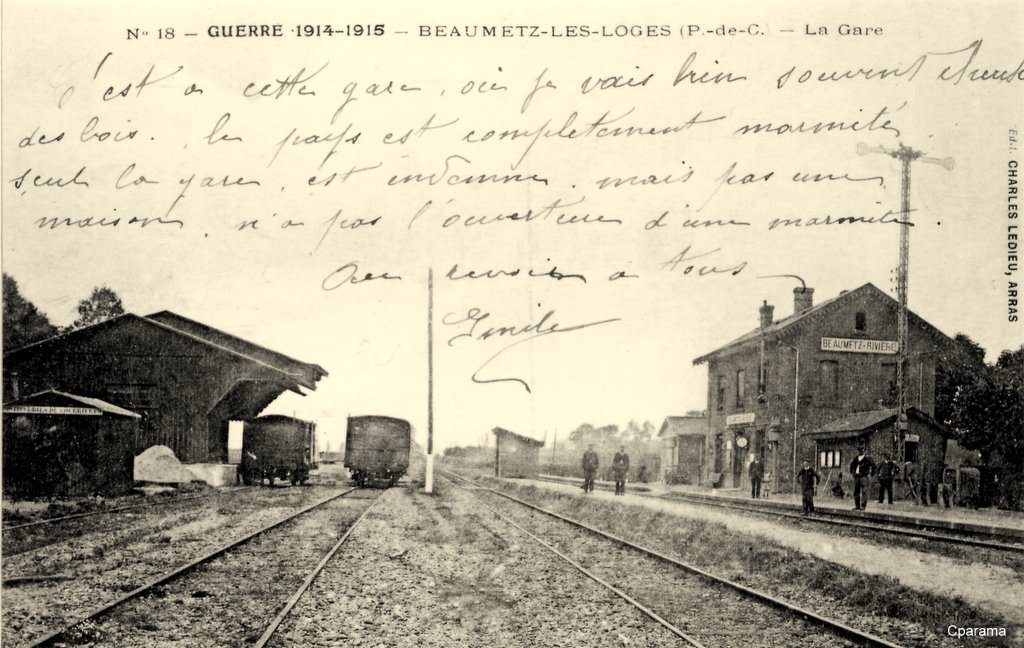 Nº 18 — GUERRE 1914-1915 — BEAUMETZ-LES-LOGES (P.-de-C.) — La Gare
c'est a cette gare, où je vais bien souvent
des bois. le pays est completement marmité
seul la gare, est indemne, mais pas une
maison, n'a pas l'ouverture d'une marmite.
Au revoir a tous
Emile
Edit. CHARLES LEDIEU, ARRAS
BEAUMETZ-RIVIÈRE
Cparama